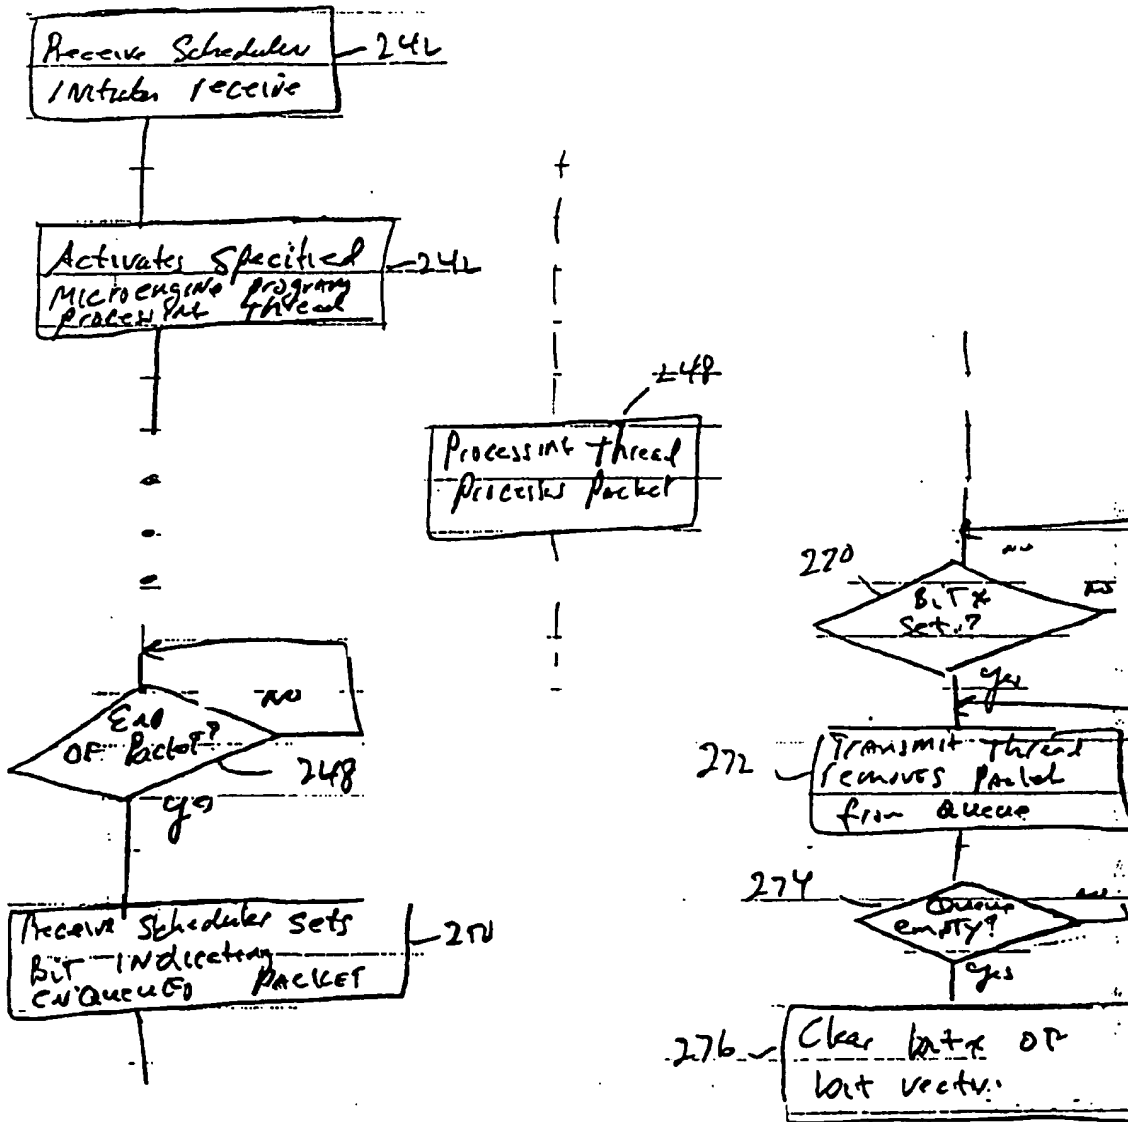 Receive Scheduler
Initiates receive
242
Activates Specified
Microengine program
processing thread
242
248
Processing thread
Processes packet
End
OF Packet?
NO
248
yes
Receive Scheduler sets
BIT INdicating
ENQUEUED PACKET
250
270
BIT x
set?
NO
NO
yes
272
TRANSMIT Thread
removes packet
from Queue
274
Queue
empty?
NO
yes
276
Clear bit x OF
bit vector